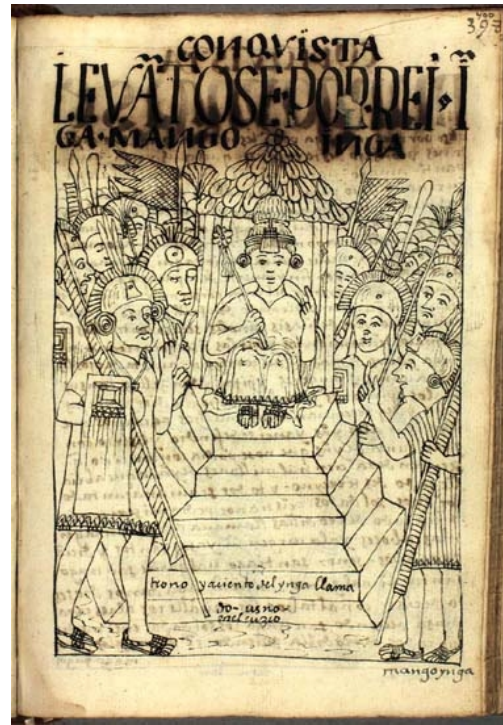 400
CONQVISTA
LEVÃTOSE·POR·REI·Ĩ
GA·MANGO INGA
trono y aciento del ynga llama
do - usno -
en el cuzco
mango ynga